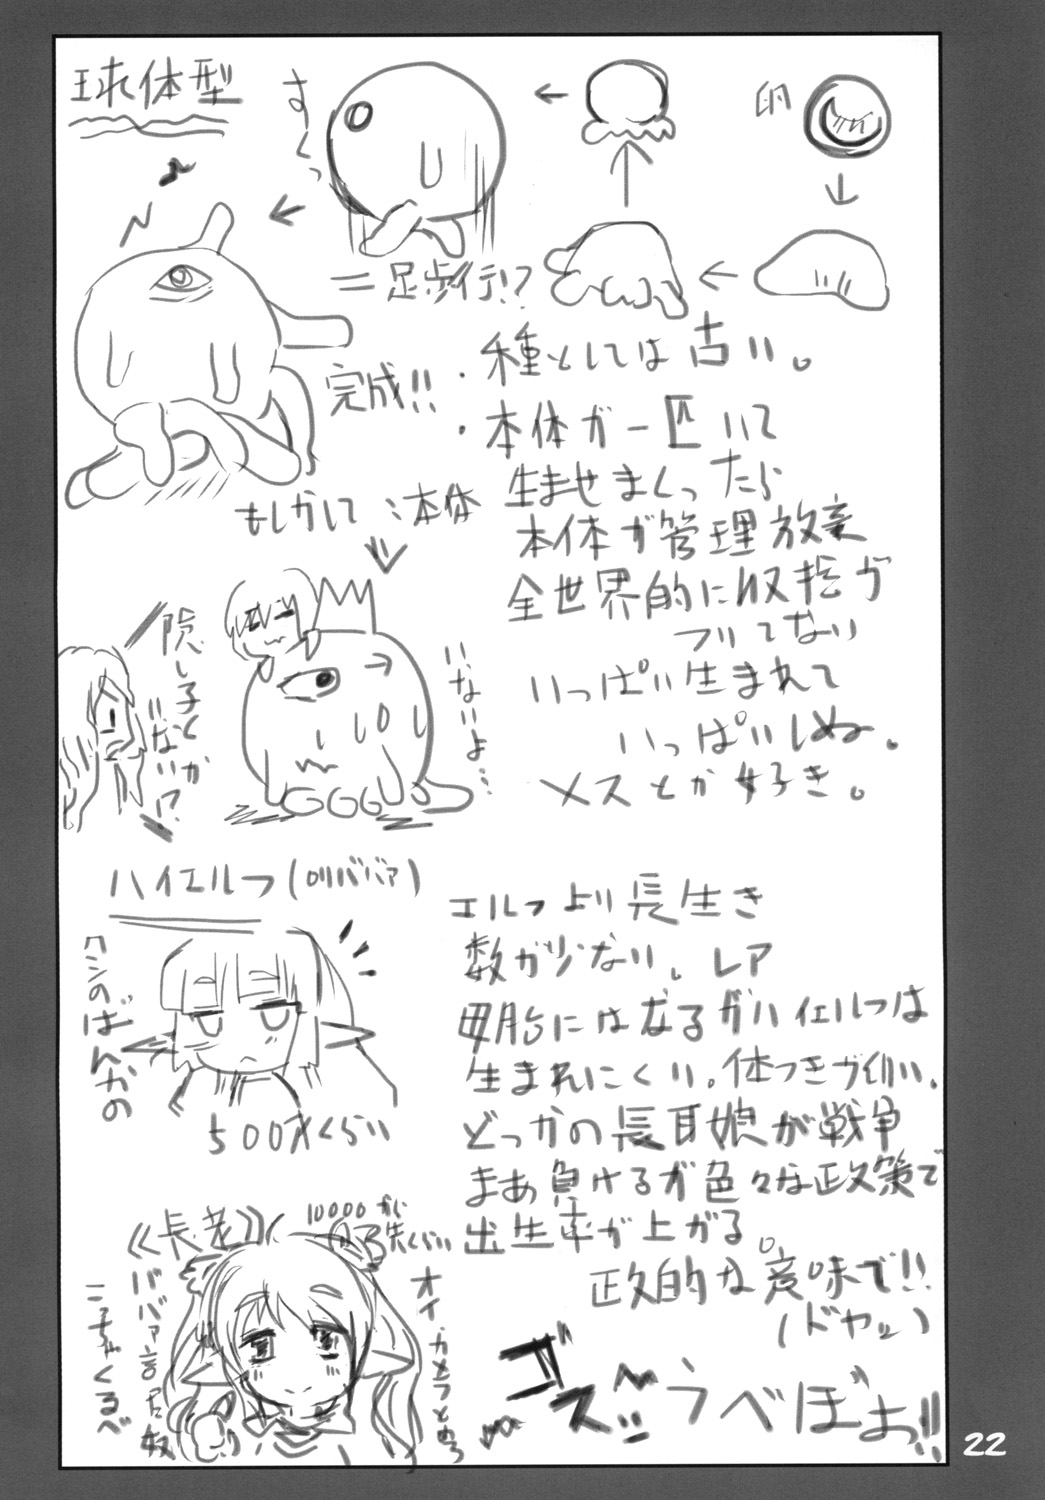 球体型
卵
すくっ
=足歩行!?
完成!!
・種としては古い。
・本体が一匹いて
生ませまくったら
本体が管理放棄
全世界的に収拾が
ついてない
いっぱい生まれて
いっぱいしぬ。
メスとか好き。
もしかして:本体
隠し子とか
いない!?
いないよ…
ハイエルフ(ロリババァ)
500才くらい
エルフより長生き
数が少ない。レア
母胎にはなるがハイエルフは
生まれにくい。体つきが幼い。
どっかの長耳娘が戦争
まあ負けるが色々な政策で
出生率が上がる。
政的な意味で!!
(ドヤッ)
《長老》
10000才
くらい
オイ
ババァ言った奴
ゴスッ
うべぼぉ!!
22